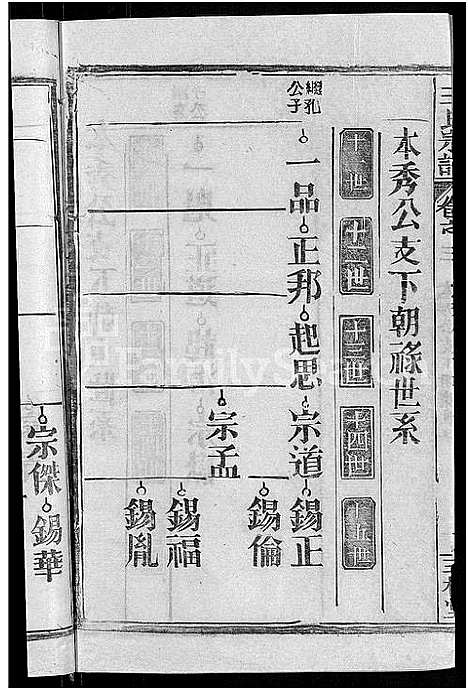 王氏宗譜
本秀公支下朝祿世系
十一世
十二世
十三世
十四世
十五世
繼孔
公子
一品
正邦
起思
宗道
錫正
錫倫
宗孟
錫福
錫胤
宗傑
錫華
FamilySearch